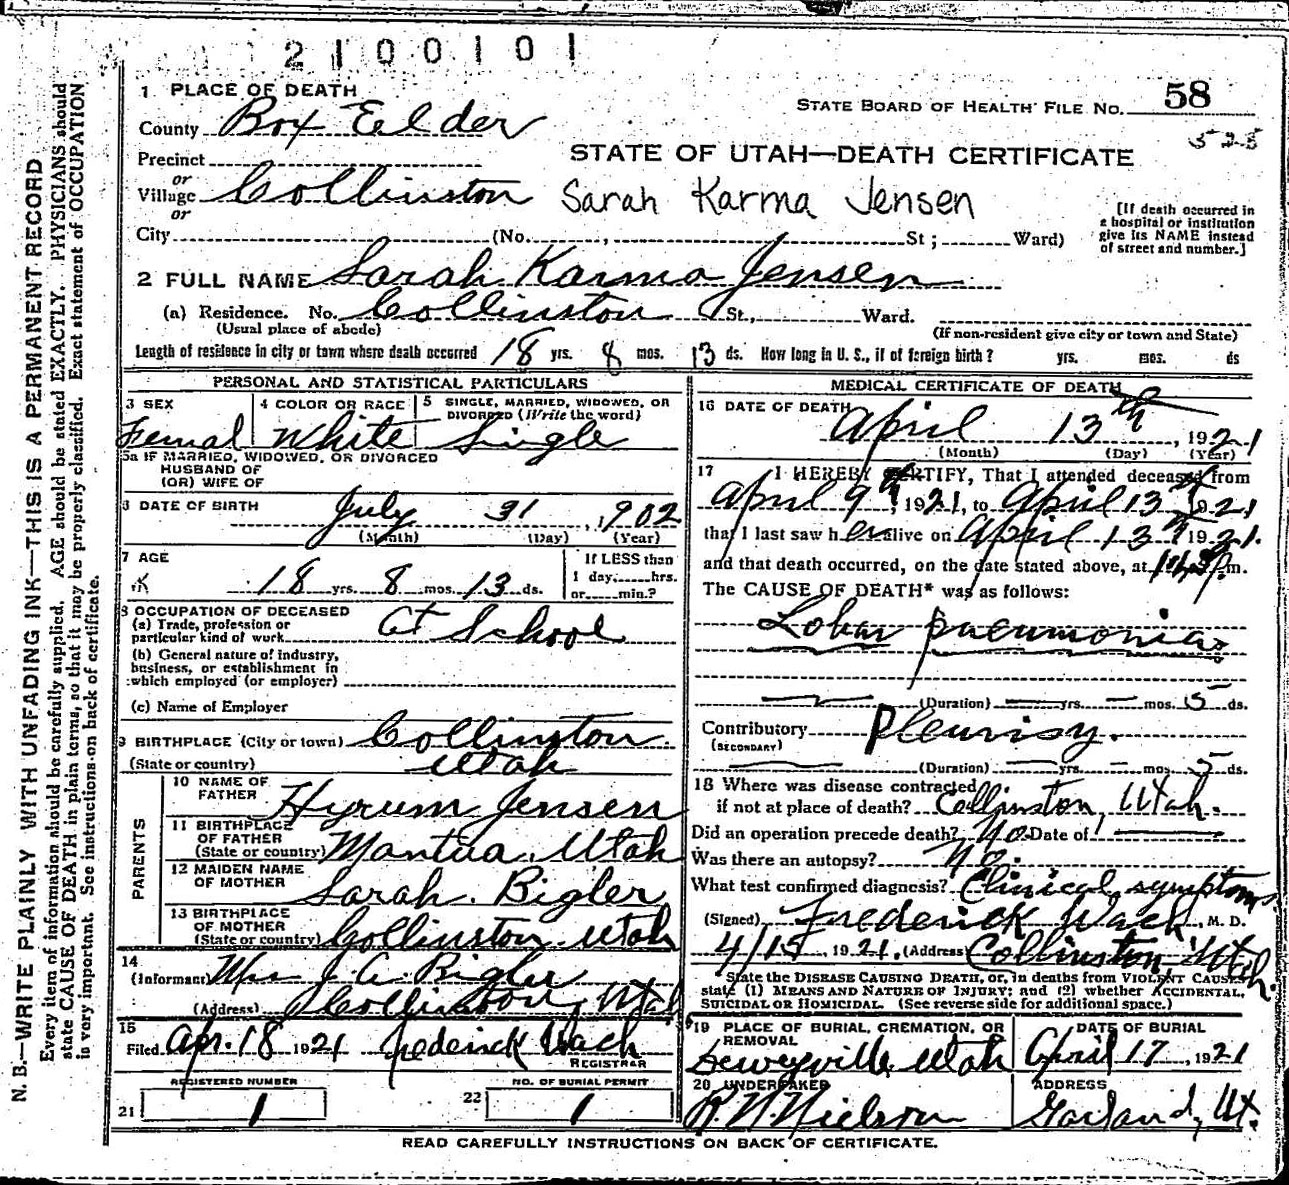 2100101
1 PLACE OF DEATH
STATE BOARD OF HEALTH FILE NO. 58
County Box Eelder
525
Precinct
STATE OF UTAH—DEATH CERTIFICATE
or
Village Collinston Sarah Karma Jensen
or
[If death occurred in
a hospital or institution
give its NAME instead
of street and number.]
City (No. , St ; Ward)
2 FULL NAME Sarah Karma Jensen
(a) Residence. No. Collinston St., Ward.
(Usual place of abode) (If non-resident give city or town and State)
Length of residence in city or town where death occurred 18 yrs. 8 mos. 13 ds. How long in U. S., if of foreign birth? yrs. mos. ds
PERSONAL AND STATISTICAL PARTICULARS
3 SEX 4 COLOR OR RACE 5 SINGLE, MARRIED, WIDOWED, OR
DIVORCED (Write the word)
Femal White Single
5a IF MARRIED, WIDOWED, OR DIVORCED
HUSBAND OF
(OR) WIFE OF
6 DATE OF BIRTH July 31, 1902
(Month) (Day) (Year)
7 AGE If LESS than
18 yrs. 8 mos. 13 ds. 1 day, hrs.
or min.?
8 OCCUPATION OF DECEASED
(a) Trade, profession or
particular kind of work At School
(b) General nature of industry,
business, or establishment in
which employed (or employer)
(c) Name of Employer
9 BIRTHPLACE (City or town) Collinston
(State or country) Utah
PARENTS
10 NAME OF
FATHER Hyrum Jensen
11 BIRTHPLACE
OF FATHER
(State or country) Mantua, Utah
12 MAIDEN NAME
OF MOTHER Sarah. Bigler
13 BIRTHPLACE
OF MOTHER
(State or country) Collinston Utah
14
(Informant) Mrs J. A. Bigler
(Address) Collinston, Utah
15
Filed Apr. 18 1921 Frederick Wach
REGISTRAR
REGISTERED NUMBER NO. OF BURIAL PERMIT
21 1 22 1
MEDICAL CERTIFICATE OF DEATH
16 DATE OF DEATH
April 13th, 1921
(Month) (Day) (Year)
17 I HEREBY CERTIFY, That I attended deceased from
April 9th, 1921, to April 13th 1921
that I last saw her alive on April 13th 1921.
and that death occurred, on the date stated above, at m.
The CAUSE OF DEATH* was as follows:
Lobar pneumonia.
(Duration) yrs. mos. 5 ds.
Contributory Pleurisy.
(SECONDARY)
(Duration) yrs. mos. 5 ds.
18 Where was disease contracted
if not at place of death? Collinston, Utah.
Did an operation precede death? No Date of
Was there an autopsy? No.
What test confirmed diagnosis? Clinical symptoms
(Signed) Frederick Wach, M. D.
4/15, 1921. (Address) Collinston Utah.
*State the DISEASE CAUSING DEATH, or, in deaths from VIOLENT CAUSES
state (1) MEANS AND NATURE OF INJURY; and (2) whether ACCIDENTAL,
SUICIDAL OR HOMICIDAL. (See reverse side for additional space.)
19 PLACE OF BURIAL, CREMATION, OR DATE OF BURIAL
REMOVAL
Deweyville, Utah April 17, 1921
20 UNDERTAKER ADDRESS
R. N. Nielson Garland, Ut.
READ CAREFULLY INSTRUCTIONS ON BACK OF CERTIFICATE.
N. B.—WRITE PLAINLY WITH UNFADING INK—THIS IS A PERMANENT RECORD
Every item of information should be carefully supplied. AGE should be stated EXACTLY. PHYSICIANS should
state CAUSE OF DEATH in plain terms, so that it may be properly classified. Exact statement of OCCUPATION
is very important. See instructions on back of certificate.